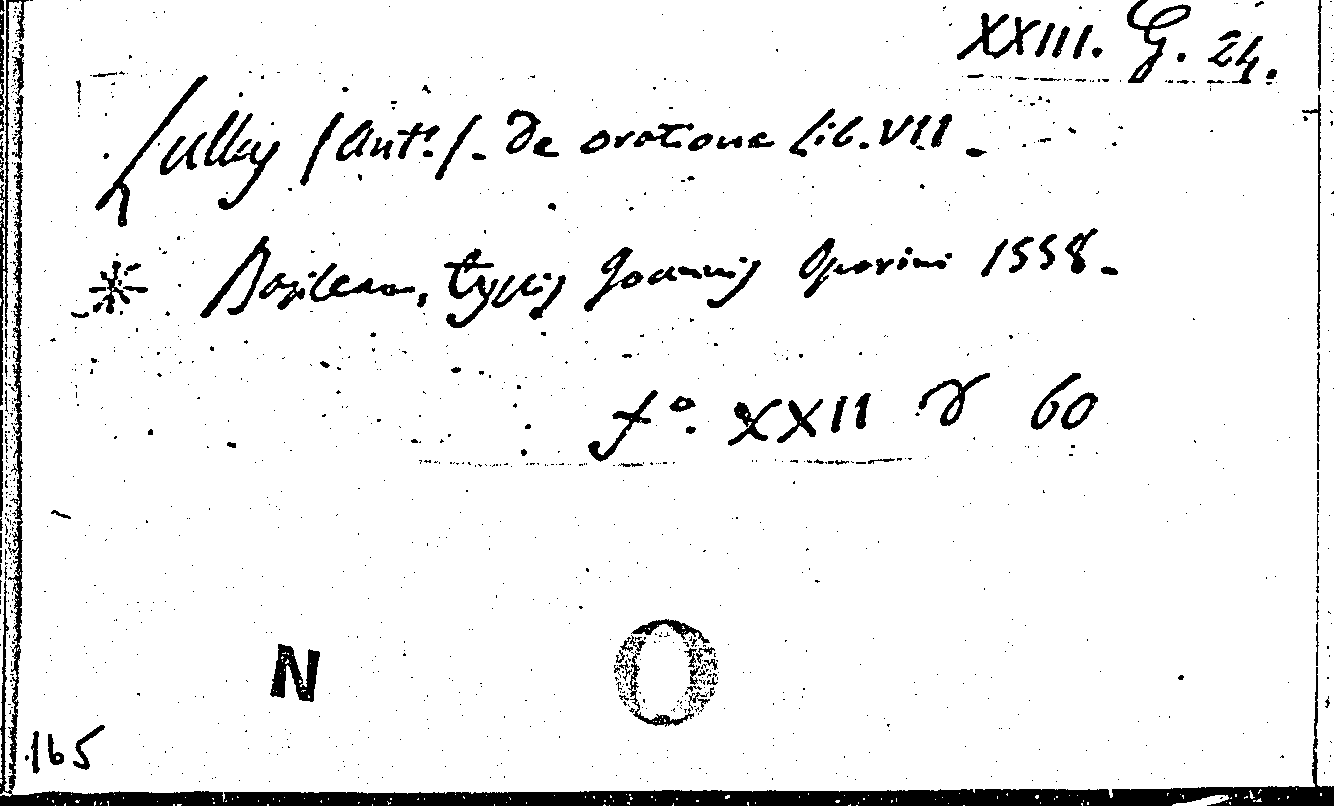 XXIII. G. 24.
Lullij (Ant.) - De oratione Lib. VII -
* Basileae, typis Joannis Oporini 1558 -
fo. XXII 60
N
165